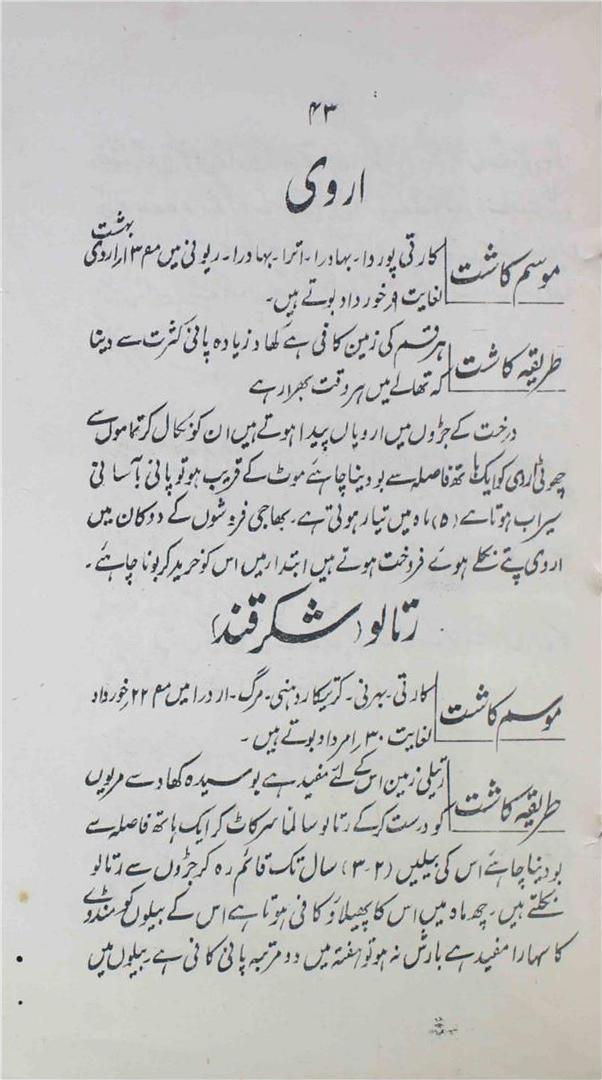 ۴۳
اروی
موسم کاشت کارتی پوردا۔ بہادرا۔ اترا۔ بہادرا۔ ریونی میں م ۳ ار اردی بہشت
لغایت ۹ر خورداد بوتے ہیں۔
طریقہ کاشت ہر قسم کی زمین کافی ہے کھاد زیادہ پانی کثرت سے دینا
کہ تھالے میں ہر وقت بھرا رہے
درخت کے جڑوں میں ارویاں پیدا ہوتے ہیں ان کو نکال کر تماموں سے
چھوٹی اروی کو ایک ہاتھ فاصلہ سے بو دینا چاہئے موٹ کے قریب ہو تو پانی باآسانی
سیراب ہوتا ہے (۵) ماہ میں تیار ہوتی ہے۔ بھاجی فروشوں کے دوکان میں
اروی پتے نکلے ہوئے فروخت ہوتے ہیں ابتدا میں اس کو خرید کر بونا چاہئے۔
رتالو (شکر قند)
موسم کاشت کارتی۔ بہرنی۔ کرتیکا روہنی۔ مرگ۔ اردرا میں م ۲۲ر خورداد
لغایت ۳۰ر امرداد بوتے ہیں۔
طریقہ کاشت ریتلی زمین اس کے لئے مفید ہے بوسیدہ کھاد سے مریوں
کو درست کر کے رتالو سالما سر کاٹ کر ایک ہاتھ فاصلہ سے
بو دینا چاہئے اس کی بیلیں (۲-۳) سال تک قائم رہ کر جڑوں سے رتالو
نکلتے ہیں۔ چھ ماہ میں اس کا پھیلاؤ کافی ہوتا ہے اس کے بیلوں کو منڈوے
کا سہارا مفید ہے بارش نہ ہو تو ہفتہ میں دو مرتبہ پانی کافی ہے۔ بیلوں میں